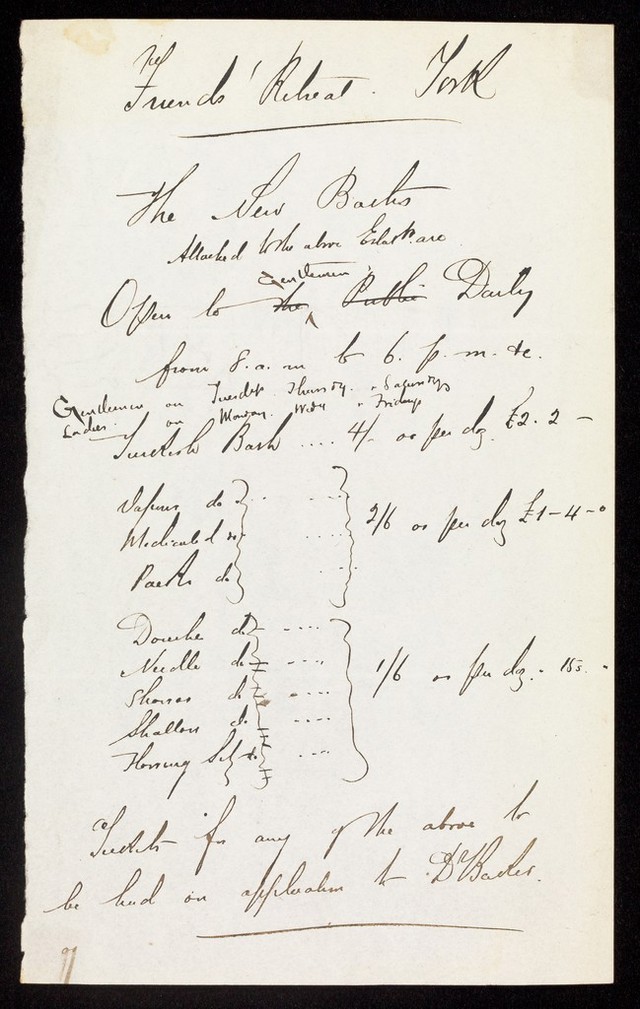 The
Friends' Retreat. York
The New Baths
Attached to the above Establt. are
Gentlemen
Open to the Public Daily
from 8. a. m to 6. p. m. &c.
Gentlemen on Tuesdys Thursdy. & Saturdys
Ladies. on Monday. Wedy & Fridays
Turkish Bath .... 4/- or per doz. £2. 2 -
Vapour do
Medicated do
2/6 or per doz £1-4-0
Packs do
Douche do
Needle do
1/6 or per doz. - 15s. -
Shower do
Shallow do
Sitz do
Tickets for any of the above to
be had on application to Dr Baker.